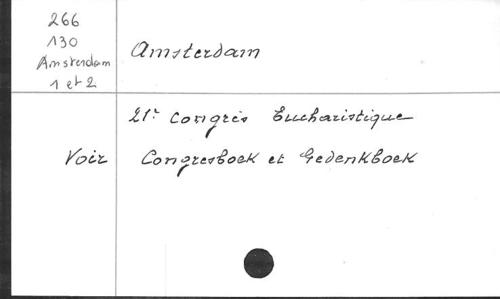 266
130
Amsterdam
1 et 2
Amsterdam
21r Congrès Eucharistique
Voir Congresboek et Gedenkboek